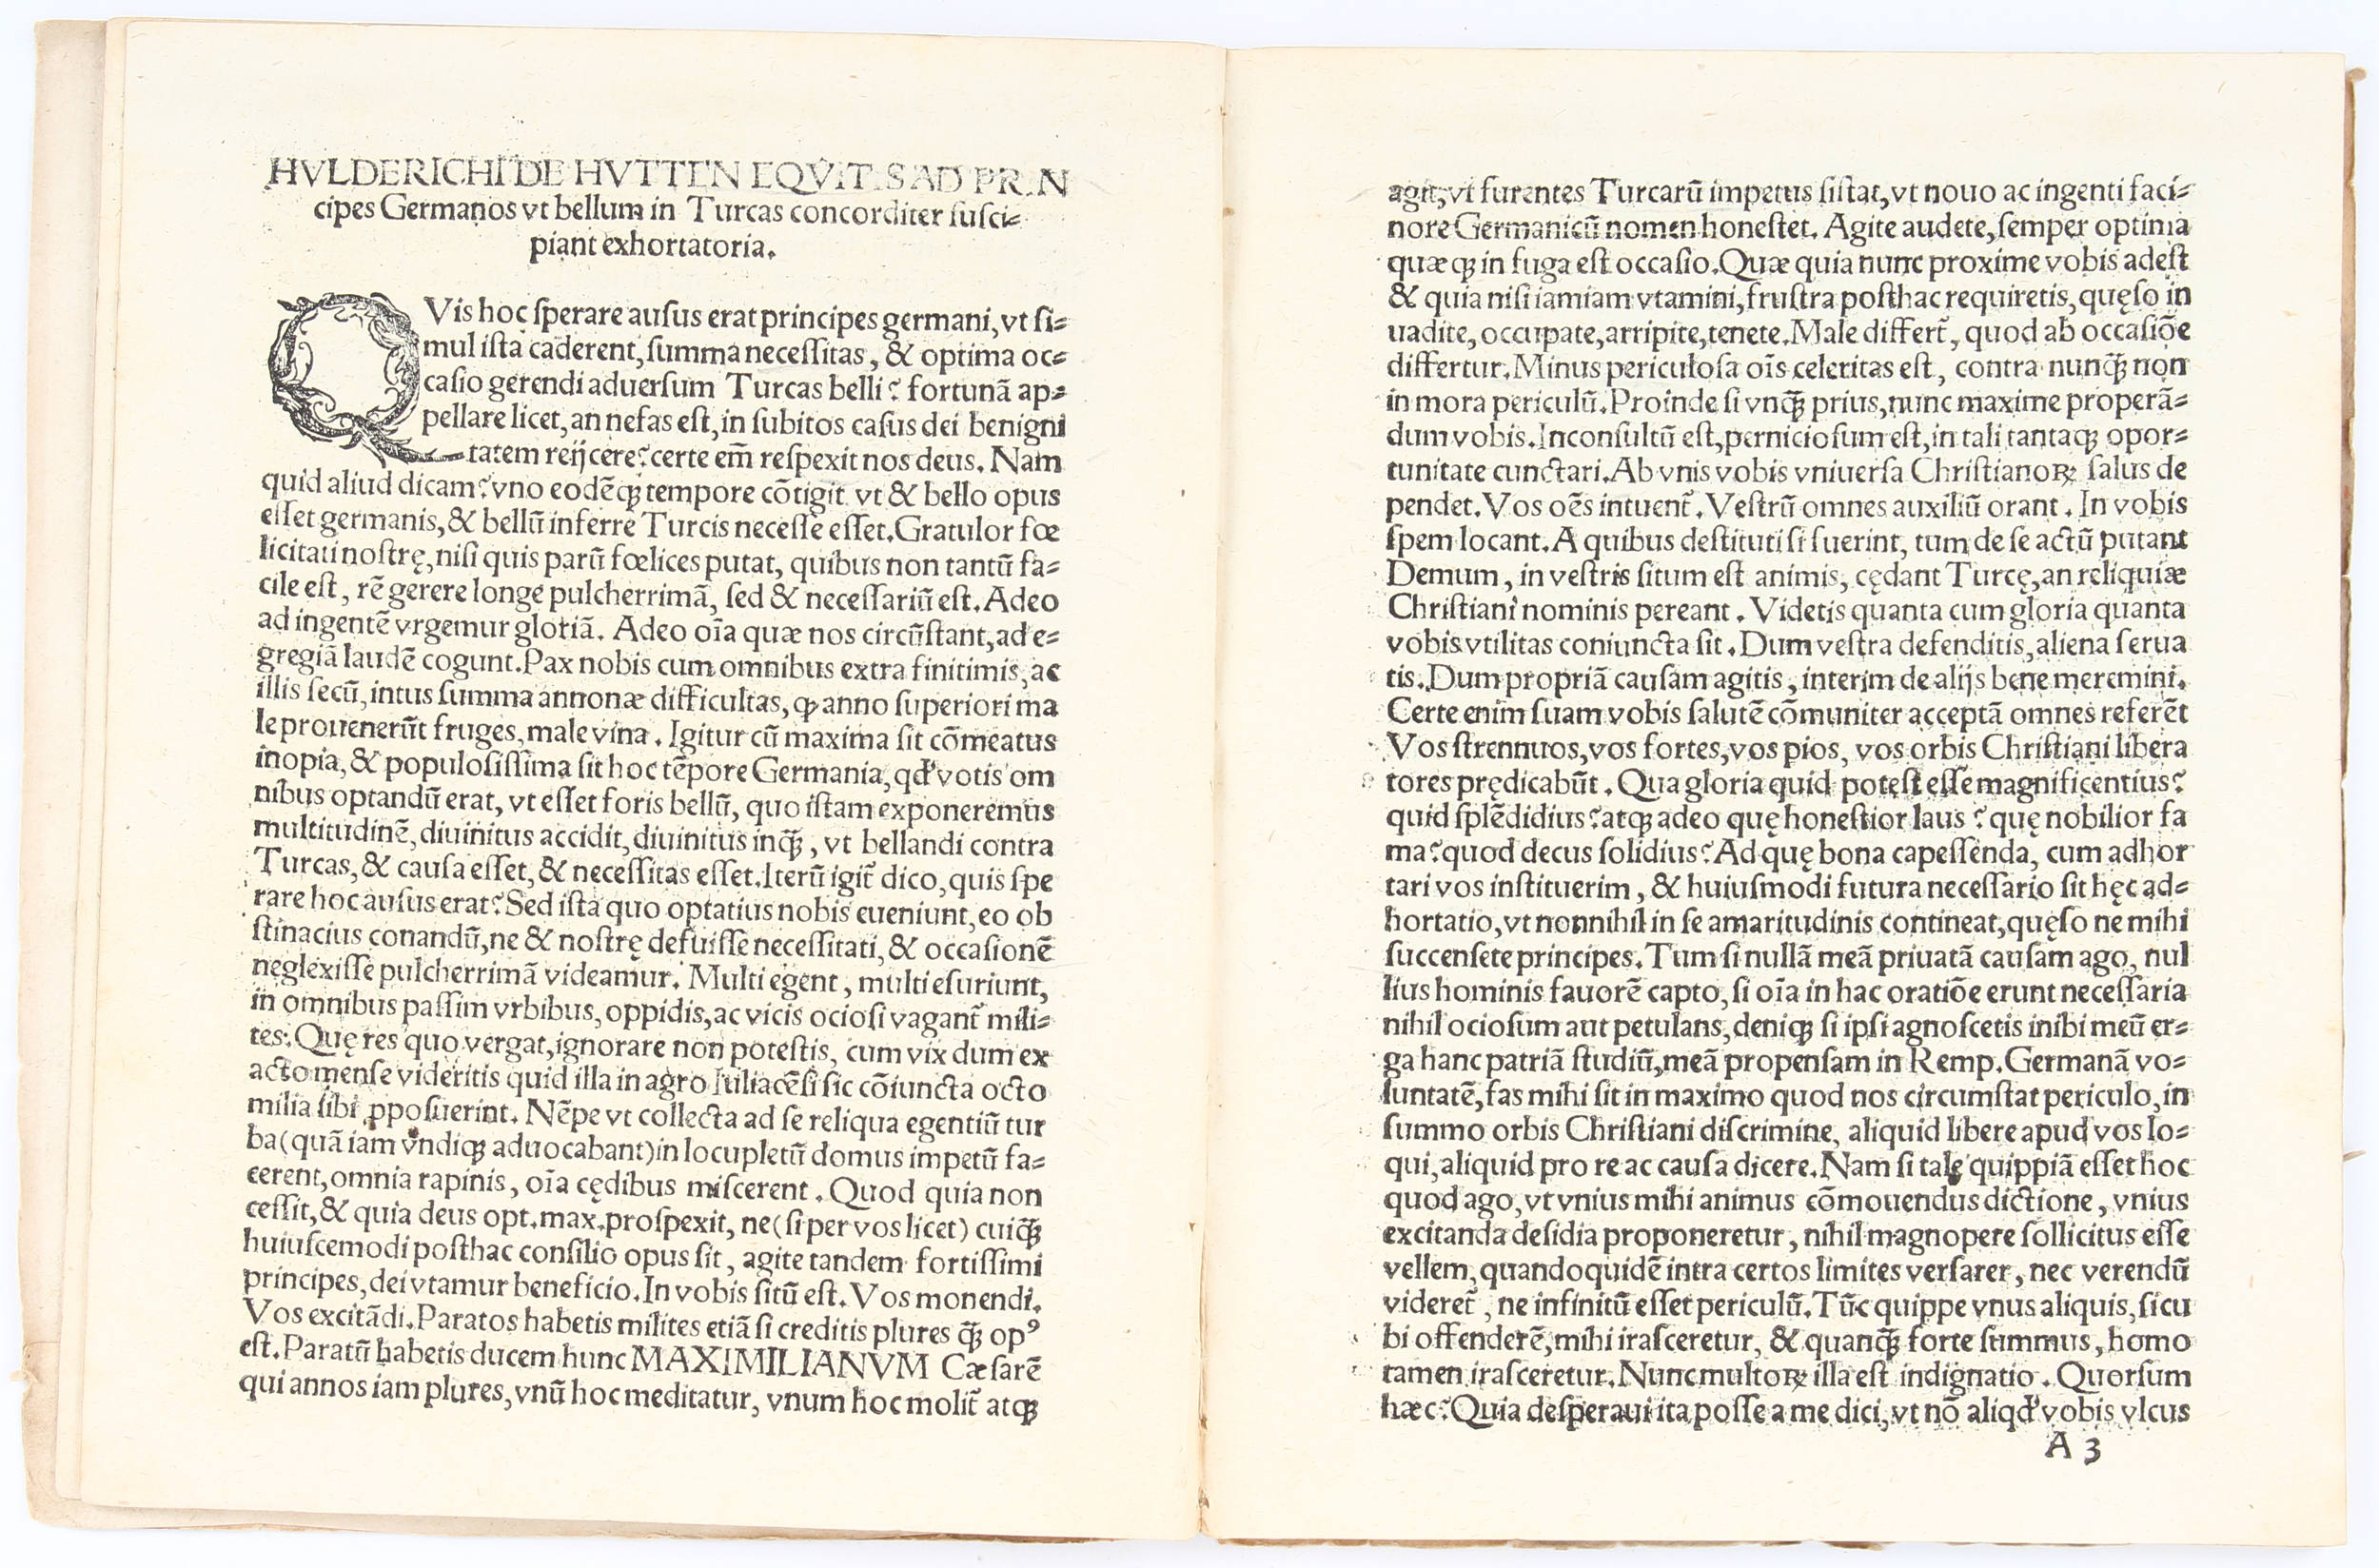 HVLDERICHI DE HVTTEN EQVITIS AD PRIN
cipes Germanos vt bellum in Turcas concorditer ſuſci⸗
piant exhortatoria.
QVis hoc ſperare auſus erat principes germani, vt ſi⸗
mul iſta caderent, ſumma neceſſitas, & optima oc⸗
caſio gerendi aduerſum Turcas belli? fortunā ap⸗
pellare licet, an nefas eſt, in ſubitos caſus dei benigni
tatem reijcere? certe em̄ reſpexit nos deus. Nam
quid aliud dicam? vno eodēqꝫ tempore cōtigit vt & bello opus
eſſet germanis, & bellū inferre Turcis neceſſe eſſet. Gratulor fœ
licitati noſtrę, niſi quis parū fœlices putat, quibus non tantū fa⸗
cile eſt, rē gerere longe pulcherrimā, ſed & neceſſariū eſt. Adeo
ad ingentē vrgemur gloriā. Adeo oīa quæ nos circūſtant, ad e⸗
gregiā laudē cogunt. Pax nobis cum omnibus extra finitimis, ac
illis ſecū, intus ſumma annonæ difficultas, ꝙ anno ſuperiori ma
le prouenerūt fruges, male vina. Igitur cū maxima ſit cōmeatus
inopia, & populoſiſſima ſit hoc tēpore Germania, qđ votis om
nibus optandū erat, vt eſſet foris bellū, quo iſtam exponeremus
multitudinē, diuinitus accidit, diuinitus inqꝫ̄, vt bellandi contra
Turcas, & cauſa eſſet, & neceſſitas eſſet. Iterū igit̄ dico, quis ſpe
rare hoc auſus erat? Sed iſta quo optatius nobis eueniunt, eo ob
ſtinacius conandū, ne & noſtrę defuiſſe neceſſitati, & occaſionē
neglexiſſe pulcherrimā videamur. Multi egent, multi eſuriunt,
in omnibus paſſim vrbibus, oppidis, ac vicis ocioſi vagant̄ mili⸗
tes. Quę res quo vergat, ignorare non poteſtis, cum vix dum ex
acto menſe videritis quid illa in agro Iuliacēſi ſic cōiuncta octo
milia ſibi ꝓpoſuerint. Nēpe vt collecta ad ſe reliqua egentiū tur
ba (quā iam vndiqꝫ aduocabant) in locupletū domus impetū fa⸗
cerent, omnia rapinis, oīa cędibus miſcerent. Quod quia non
ceſſit, & quia deus opt. max. proſpexit, ne (ſi per vos licet) cuiqꝫ̄
huiuſcemodi poſthac conſilio opus ſit, agite tandem fortiſſimi
principes, dei vtamur beneficio. In vobis ſitū eſt. Vos monendi.
Vos excitādi. Paratos habetis milites etiā ſi creditis plures qꝫ̄ opꝰ
eſt. Paratū habetis ducem hunc MAXIMILIANVM Cæſarē
qui annos iam plures, vnū hoc meditatur, vnum hoc molit̄ atqꝫ
agit, vt furentes Turcarū impetus ſiſtat, vt nouo ac ingenti faci⸗
nore Germanicū nomen honeſtet. Agite audete, ſemper optima
quæqꝫ in fuga eſt occaſio. Quæ quia nunc proxime vobis adeſt
& quia niſi iamiam vtamini, fruſtra poſthac requiretis, quęſo in
uadite, occupate, arripite, tenete. Male differt̄, quod ab occaſiōe
differtur. Minus periculoſa oīs celeritas eſt, contra nunqꝫ̄ non
in mora periculū. Proinde ſi vnqꝫ̄ prius, nunc maxime properā⸗
dum vobis. Inconſultū eſt, pernicioſum eſt, in tali tantaqꝫ opor⸗
tunitate cunctari. Ab vnis vobis vniuerſa Chriſtianoꝝ ſalus de
pendet. Vos oēs intuent̄. Veſtrū omnes auxiliū orant. In vobis
ſpem locant. A quibus deſtituti ſi fuerint, tum de ſe actū putant
Demum, in veſtris ſitum eſt animis, cędant Turcę, an reliquiæ
Chriſtiani nominis pereant. Videtis quanta cum gloria quanta
vobis vtilitas coniuncta ſit. Dum veſtra defenditis, aliena ſerua
tis. Dum propriā cauſam agitis, interim de alijs bene meremini.
Certe enim ſuam vobis ſalutē cōmuniter acceptā omnes referēt
Vos ſtrennuos, vos fortes, vos pios, vos orbis Chriſtiani libera
tores prędicabūt. Qua gloria quid poteſt eſſe magnificentius?
quid ſplēdidius? atqꝫ adeo quę honeſtior laus? quę nobilior fa
ma? quod decus ſolidius? Ad quę bona capeſſenda, cum adhor
tari vos inſtituerim, & huiuſmodi futura neceſſario ſit hęc ad⸗
hortatio, vt nonnihil in ſe amaritudinis contineat, quęſo ne mihi
ſuccenſete principes. Tum ſi nullā meā priuatā cauſam ago, nul
lius hominis fauorē capto, ſi oīa in hac oratiōe erunt neceſſaria
nihil ocioſum aut petulans, deniqꝫ ſi ipſi agnoſcetis inibi meū er⸗
ga hanc patriā ſtudiū, meā propenſam in Remp. Germanā vo⸗
luntatē, fas mihi ſit in maximo quod nos circumſtat periculo, in
ſummo orbis Chriſtiani diſcrimine, aliquid libere apud vos lo⸗
qui, aliquid pro re ac cauſa dicere. Nam ſi tale quippiā eſſet hoc
quod ago, vt vnius mihi animus cōmouendus dictione, vnius
excitanda deſidia proponeretur, nihil magnopere ſollicitus eſſe
vellem, quandoquidē intra certos limites verſarer, nec verendū
videret̄, ne infinitū eſſet periculū. Tūc quippe vnus aliquis, ſicu
bi offenderē, mihi iraſceretur, & quanqꝫ̄ forte ſummus, homo
tamen iraſceretur. Nunc multoꝝ illa eſt indignatio. Quorſum
hæc? Quia deſperaui ita poſſe a me dici, vt nō aliqđ vobis vlcus
A 3